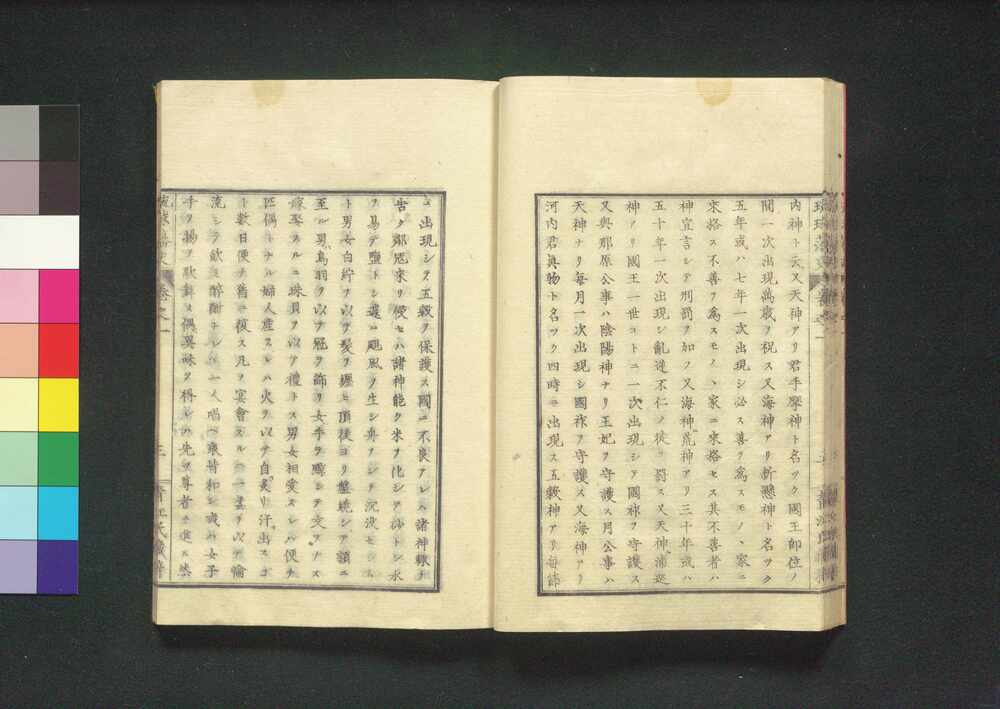 内神ト云又天神アリ君手摩神ト名ツク國王即位ノ
間一次出現萬歳ヲ祝ス又海神アリ新懸神ト名ツク
五年或ハ七年一次出現シ必ス善ヲ爲スモノヽ家ニ
來格ス不善ヲ爲スモノヽ家ニ來格セス其不善者ハ
神宣言シテ刑罰ヲ加フ又海神荒神アリ三十年或ハ
五十年一次出現シ亂逆不仁ノ徒ヲ罰ス又天神浦巡
神アリ國王一世コトニ一次出現シテ國祚ヲ守護ス
又與那原公事ハ陰陽神ナリ王妃ヲ守護ス月公事ハ
天神ナリ毎月一次出現シ國祚ヲ守護ス又海神アリ
河内君眞物ト名ツク四時ニ出現ス五穀神アリ毎歳
ニ出現シテ五穀ヲ保護ス國ニ不良アレハ諸神輙チ
告ク鄰冦來リ侵セハ諸神能ク米ヲ化シテ砂トシ水
ヲ易テ鹽トシ還ニ颶風ヲ生シ舟ヲシテ沉没セシム
ト男女白紵ヲ以テ髪ヲ纒ヒ頂後ヨリ盤繞シテ額ニ
至ル男ハ鳥羽ヲ以テ冠ヲ飾リ女手ヲ黥シテ文ヲナス
嫁娶スルニ珠貝ヲ以テ禮トス男女相愛スレハ便チ
匹偶トナル婦人産スレハ火ヲ以テ自炙リ汗ヲ出スコ
ト數日便チ舊ニ復ス凡ソ宴會スルニ一
流シテ飲ミ醉酣ナレハ一人唱ヘ衆皆和シ或ハ女子
手ヲ揚ケ歌舞ス偶異味ヲ得レハ先ヲ尊者ニ進ム